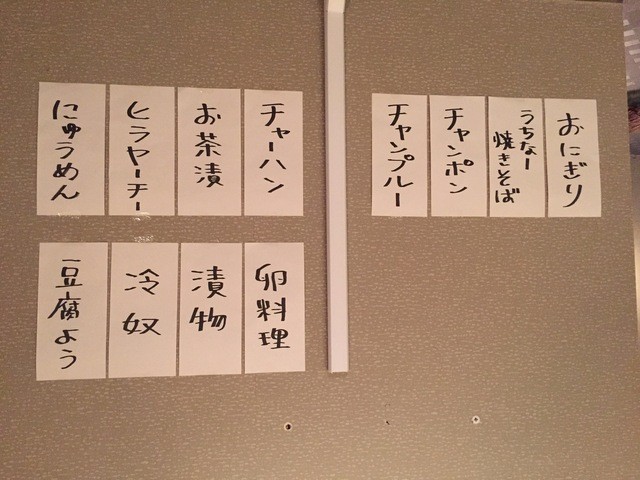 おにぎり
うちなー
焼きそば
チャンポン
チャンプルー
チャーハン
お茶漬
ヒラヤーチー
にゅうめん
卵料理
漬物
冷奴
豆腐よう